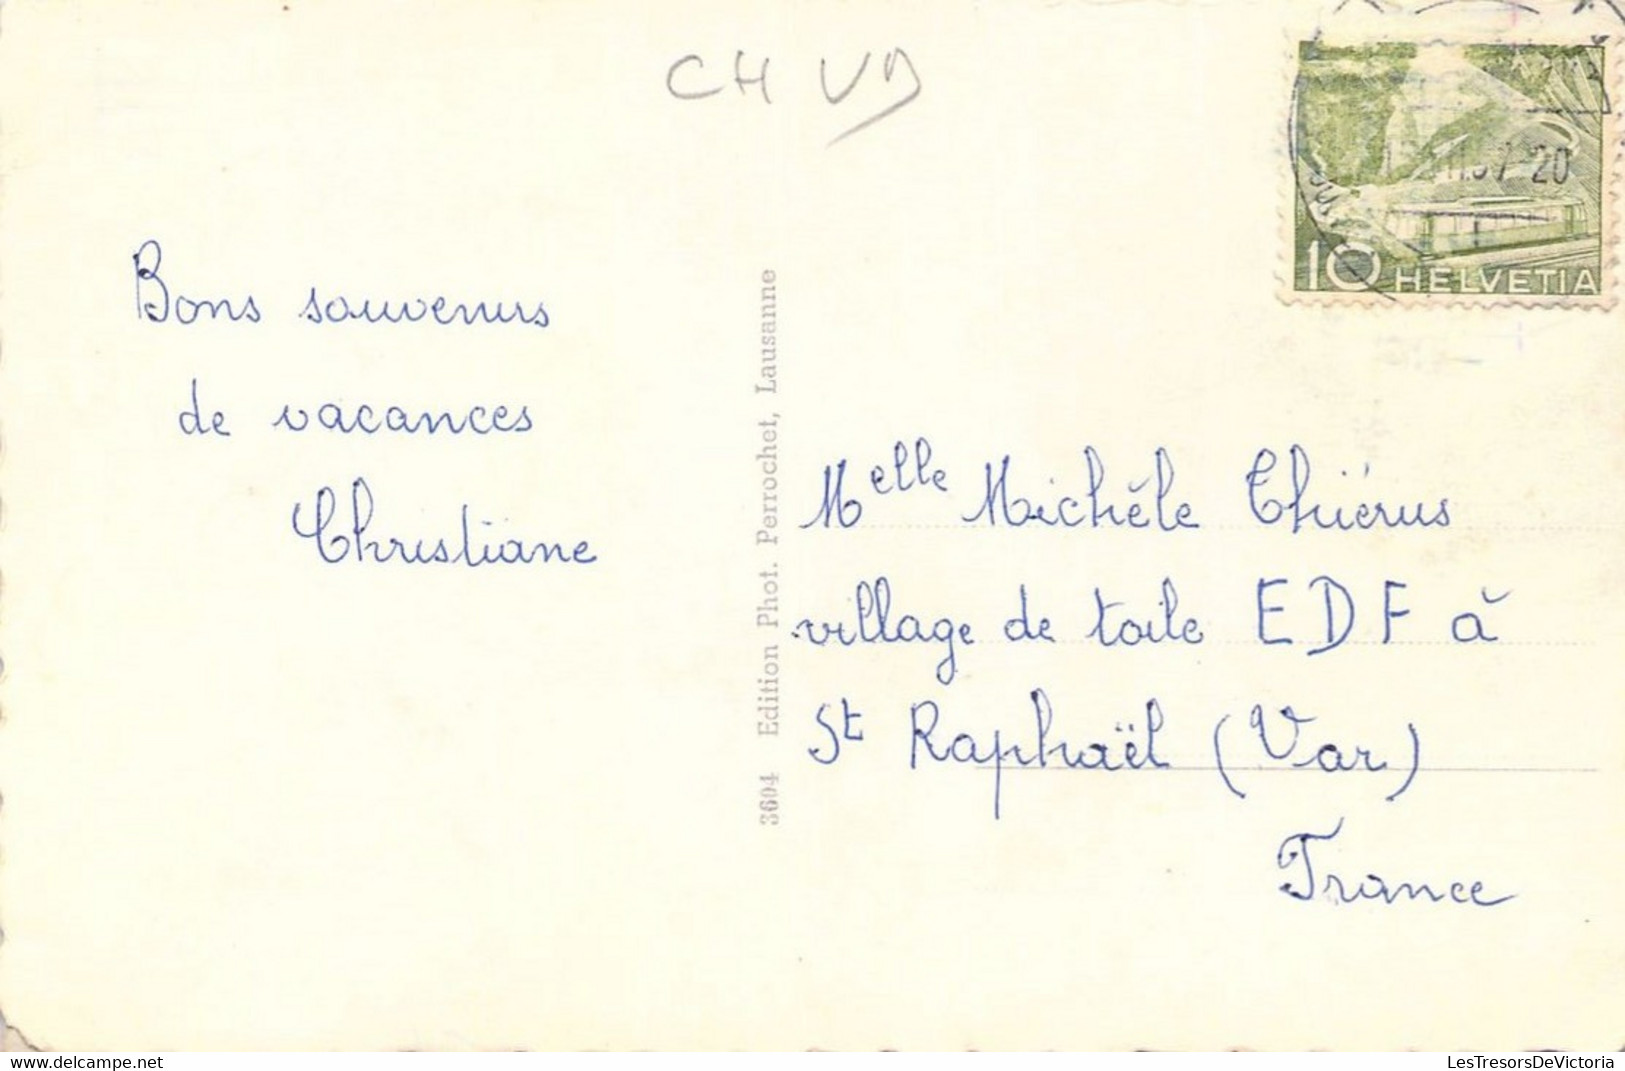 CH VD
Bons souvenirs
de vacances
Christiane
3604 Edition Phot. Perrochet, Lausanne
10 HELVETIA
20
Melle Michèle Thiérus
village de toile EDF à
St Raphaël (Var)
France
delcampe.net
LesTresorsDeVictoria